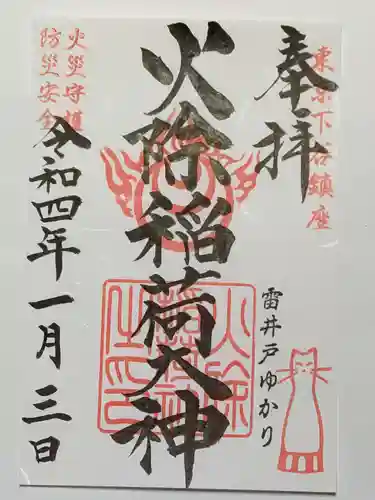 奉拝
東京下谷鎮座
火除稲荷大神
雷井戸ゆかり
火除
稲荷神
之印
火災守護
防災安全
令和四年一月三日